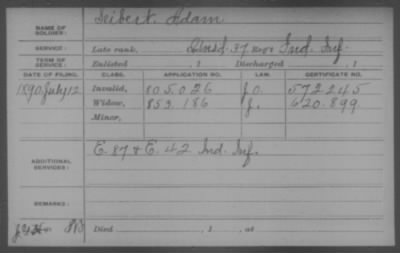 NAME OF SOLDIER: Seibert, Adam
SERVICE: Late rank, Unasd. 37 Reg't Ind. Inf.
TERM OF SERVICE: Enlisted , 1 Discharged , 1
DATE OF FILING. CLASS. APPLICATION NO. LAW. CERTIFICATE NO.
1890 July 12 Invalid, 805.026 J.O. 572245
Widow, 853.186 J. 620.899
Minor,
ADDITIONAL SERVICES: E. 87 & E. 42 Ind. Inf.
REMARKS:
Died , 1 , at